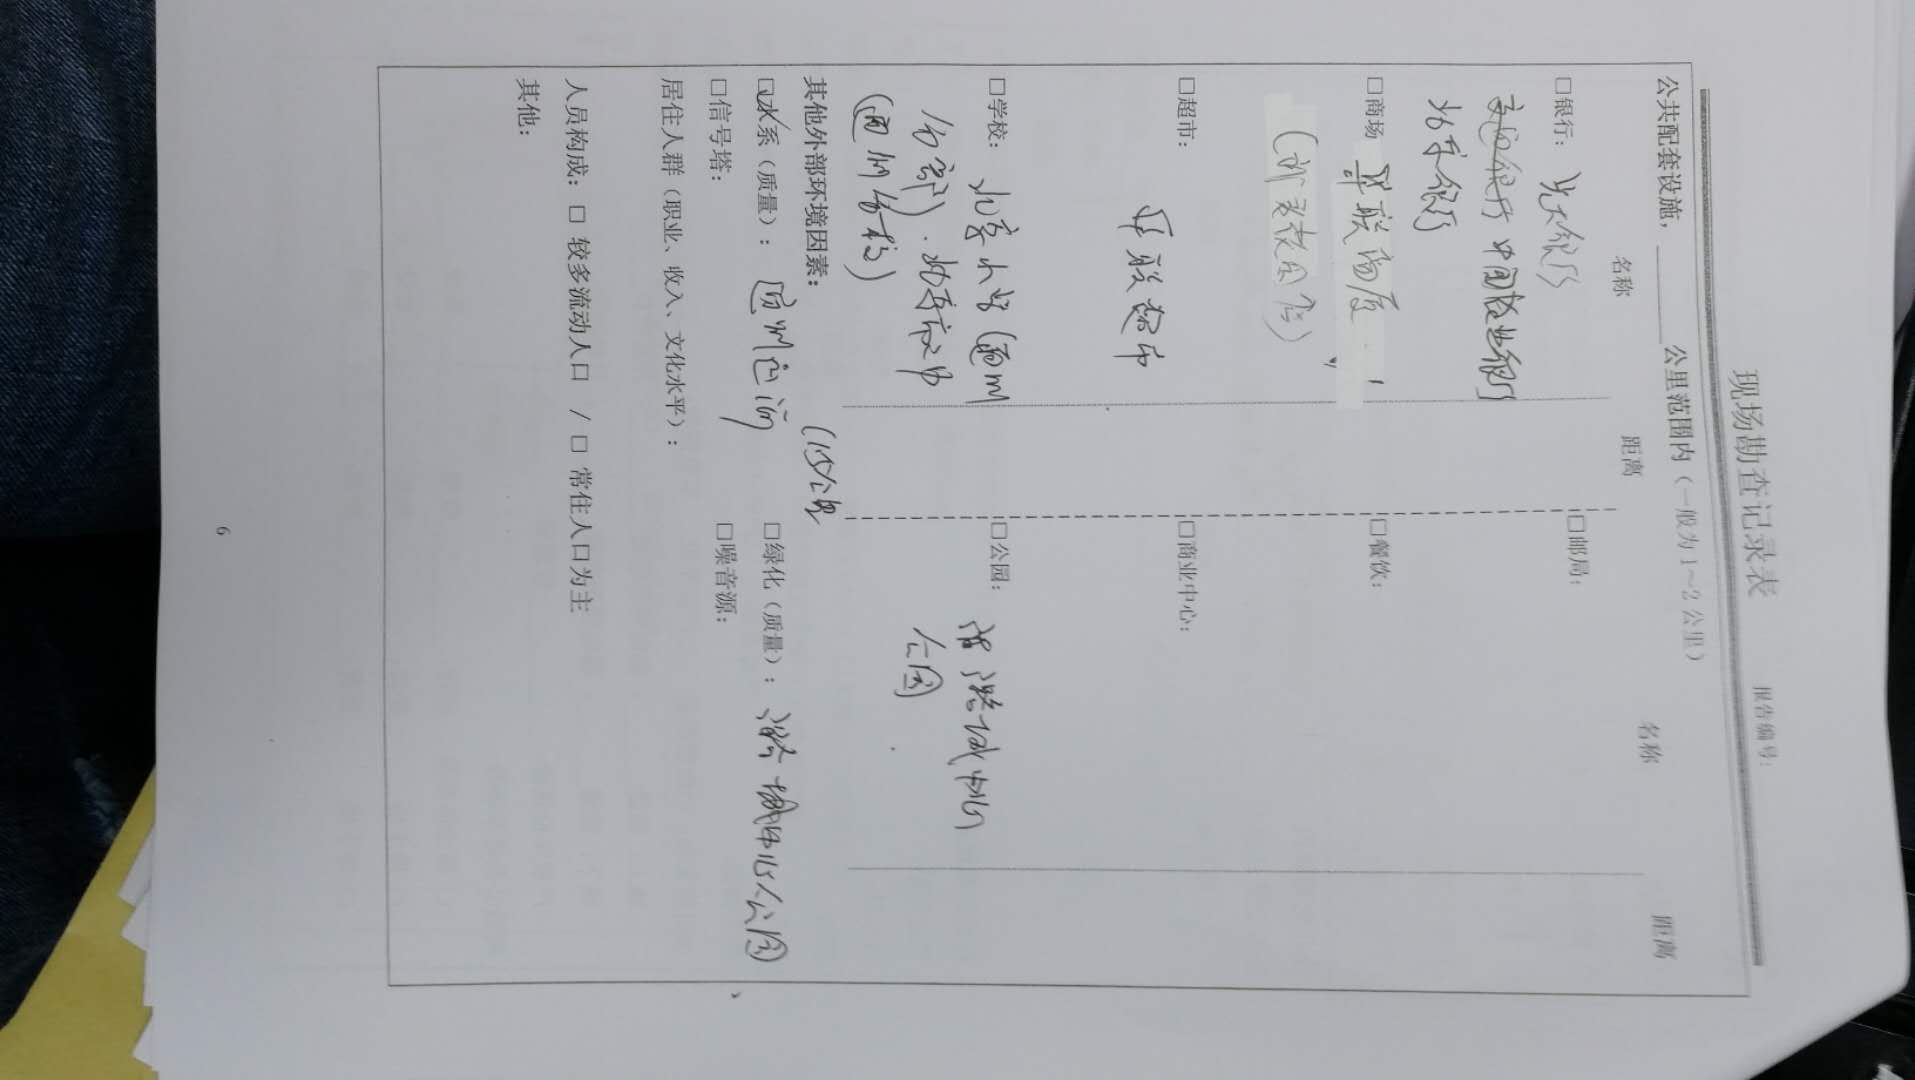 现场勘查记录表
报告编号:
公共配套设施，______公里范围内（一般为1～2公里）
名称 距离 名称 距离
□银行: 光大银行 □邮局:
交通银行 中国邮政银行
北京银行
□商场 华联商厦 □餐饮:
□超市: 华联超市 □商业中心:
□学校: 北京小学（通州 □公园: 城中心
分部）. 北京 公园
（通州分校）
其他外部环境因素: （15公里
□水系（质量）: 通州运河 □绿化（质量）: 城中心公园
□信号塔: □噪音源:
居住人群（职业、收入、文化水平）:
人员构成: □ 较多流动人口 / □ 常住人口为主
其他:
6